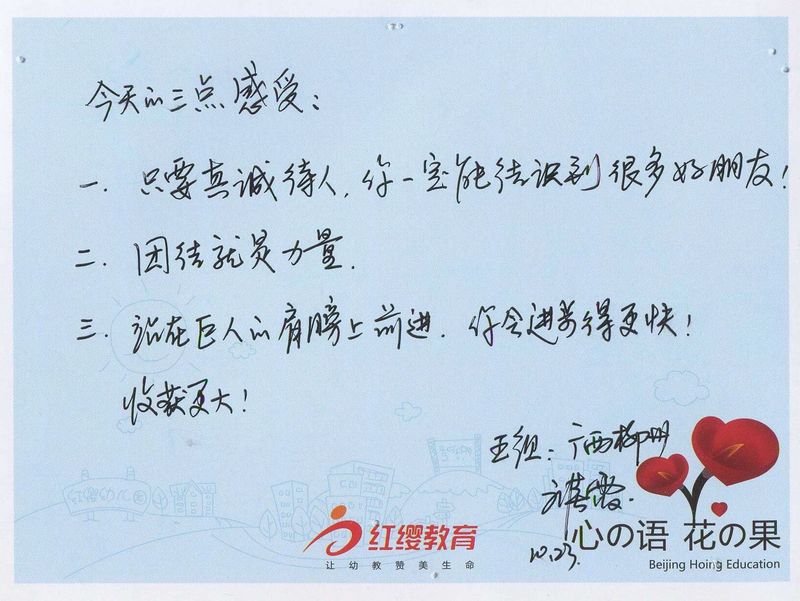 今天的三点感受：
一．只要真诚待人，你一定能结识到很多好朋友！
二．团结就是力量．
三．站在巨人的肩膀上前进．你会进步得更快！
收获更大！
五组：广西柳州
霞
10.23
红缨幼儿园
红缨教育
让幼教赞美生命
心の语 花の果
Beijing Hoing Education